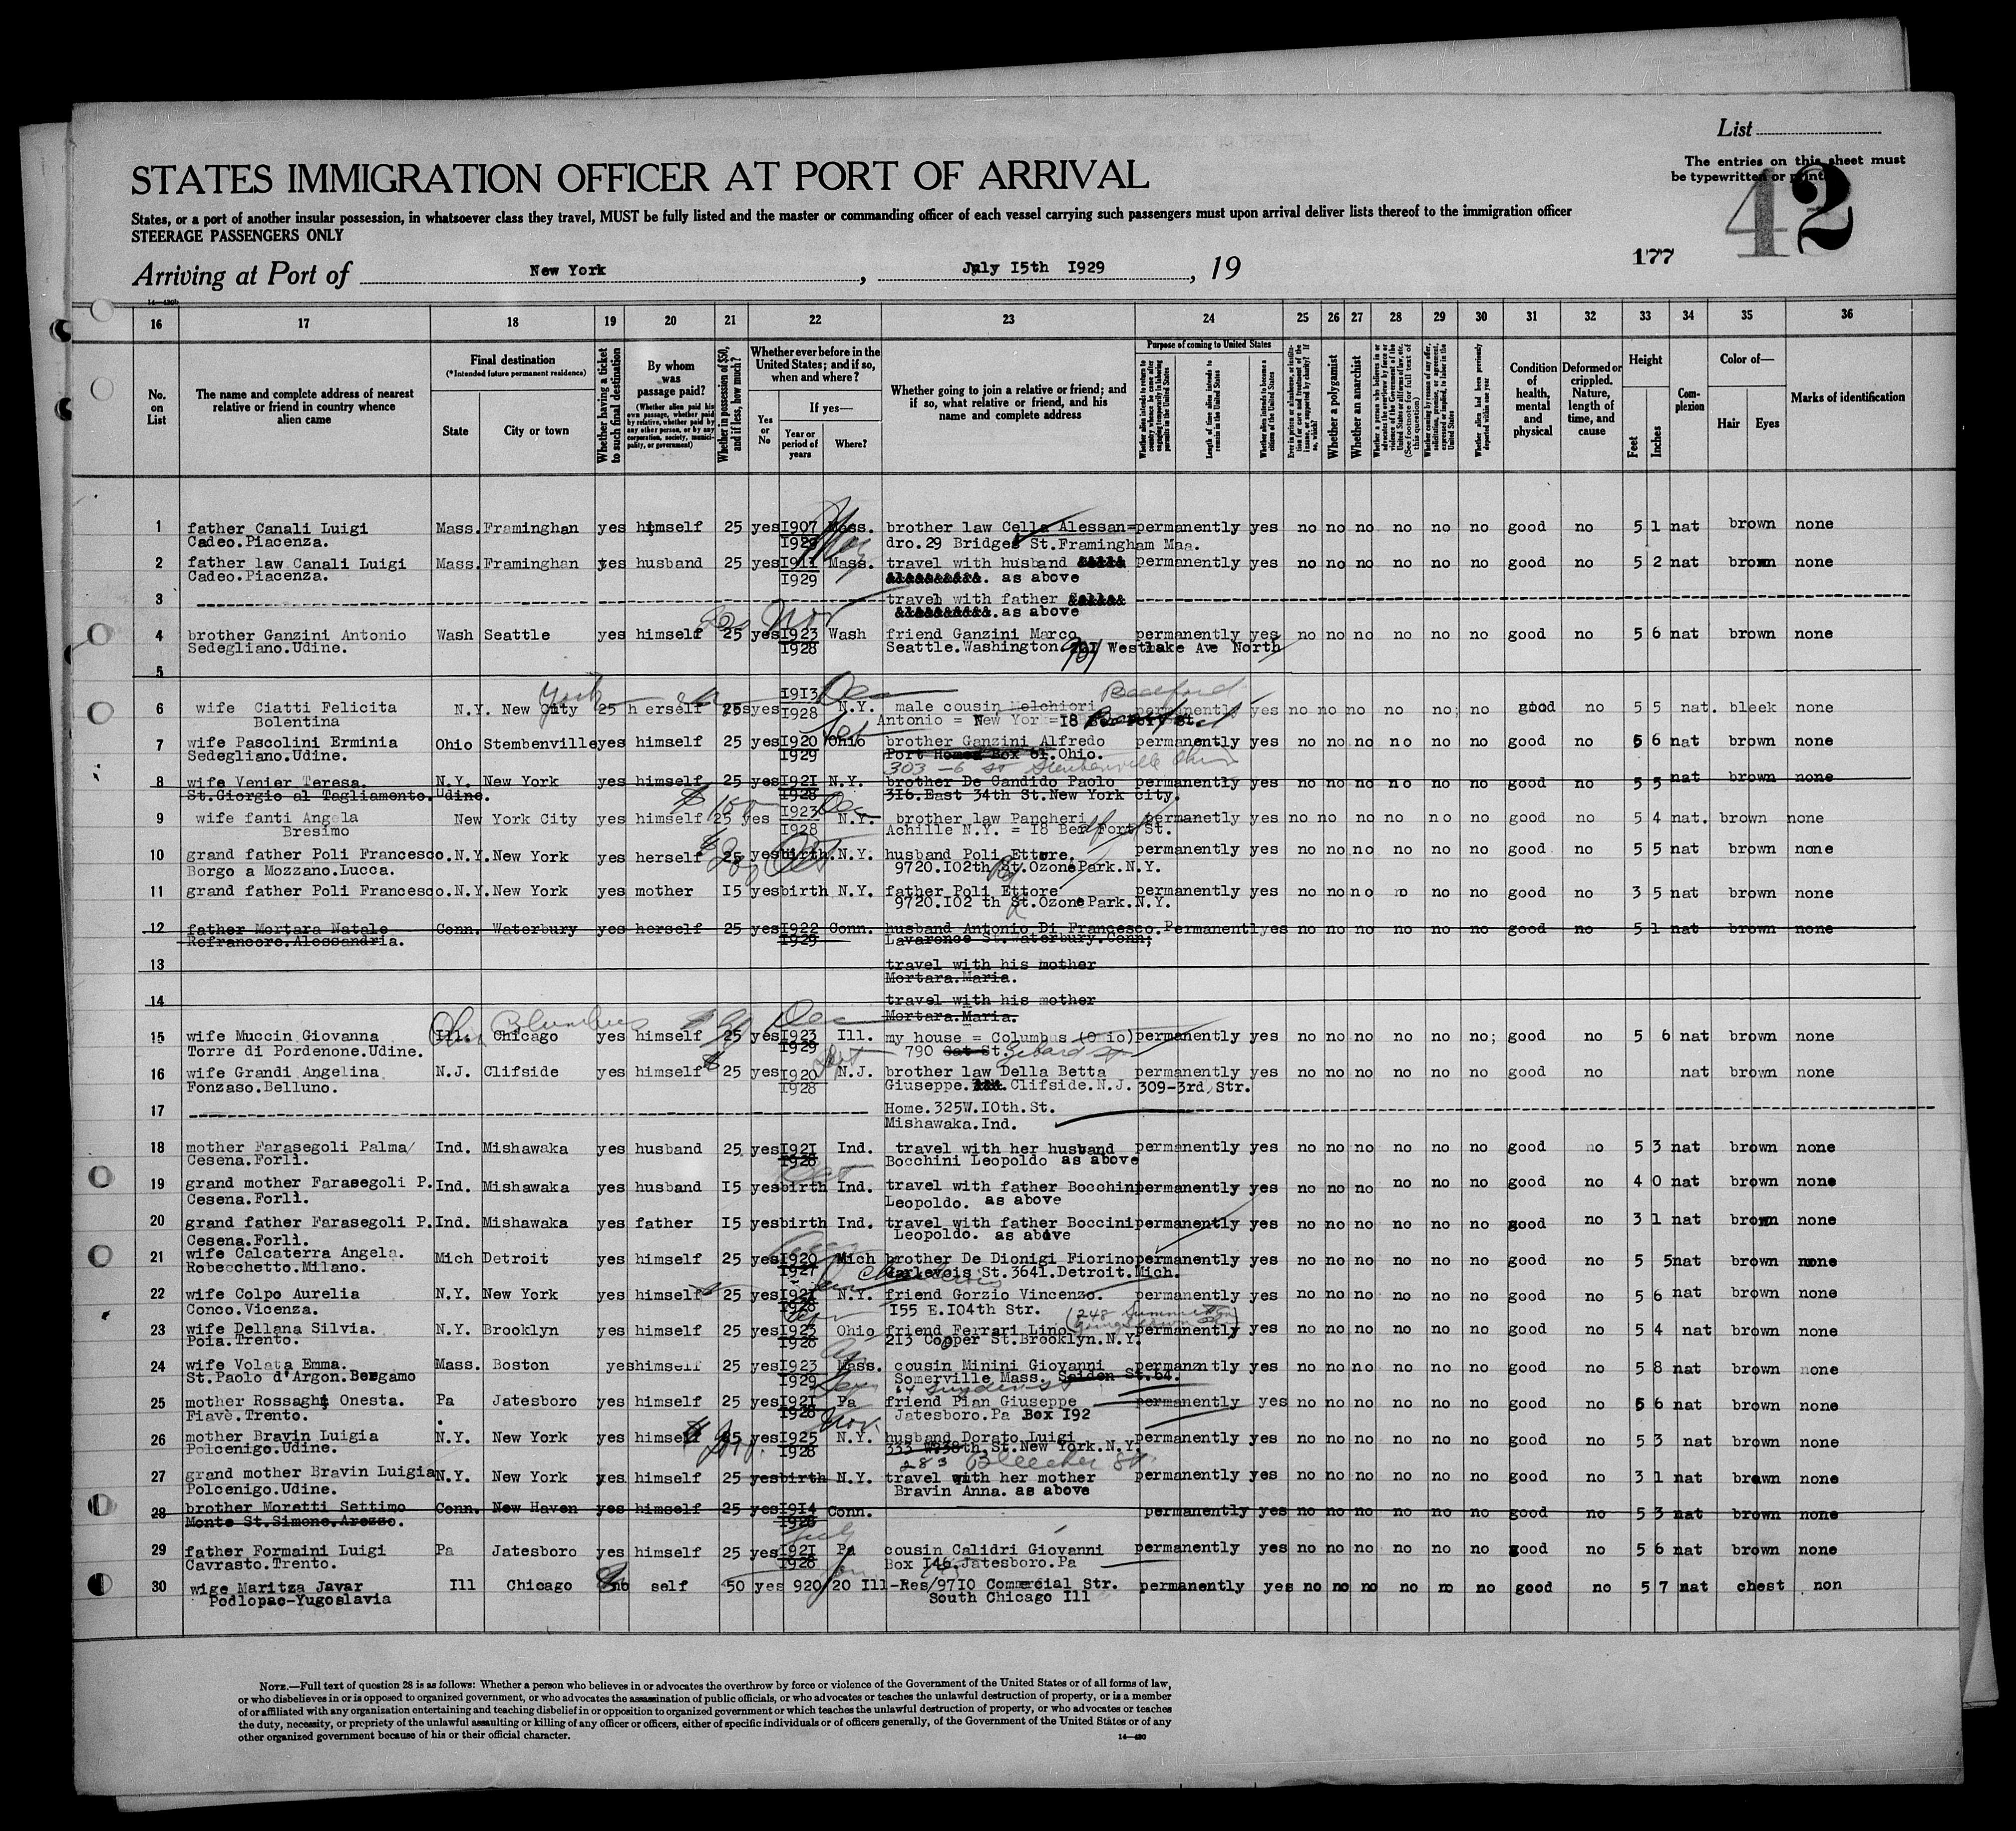 List
The entries on this sheet must
be typewritten or printed
42
177
STATES IMMIGRATION OFFICER AT PORT OF ARRIVAL
States, or a port of another insular possession, in whatsoever class they travel, MUST be fully listed and the master or commanding officer of each vessel carrying such passengers must upon arrival deliver lists thereof to the immigration officer
STEERAGE PASSENGERS ONLY
Arriving at Port of New York, July 15th 1929, 19
16 17 18 19 20 21 22 23 24 25 26 27 28 29 30 31 32 33 34 35 36
No. on List
The name and complete address of nearest relative or friend in country whence alien came
Final destination
(*Intended future permanent residence)
State
City or town
Whether having a ticket to such final destination
By whom was passage paid?
(Whether alien paid his own passage, whether paid by relative, whether paid by any other person, or by any corporation, society, municipality, or government)
Whether in possession of $50, and if less, how much?
Whether ever before in the United States; and if so, when and where?
Yes or No
If yes—
Year or period of years
Where?
Whether going to join a relative or friend; and if so, what relative or friend, and his name and complete address
Purpose of coming to United States
Length of time alien intends to remain in the United States
Whether alien intends to become a citizen of the United States
Whether a polygamist
Whether an anarchist
Condition of health, mental and physical
Deformed or crippled. Nature, length of time, and cause
Height
Feet
Inches
Complexion
Color of—
Hair
Eyes
Marks of identification
1 father Canali Luigi Mass. Framinghan yes himself 25 yes 1907 Mass. brother law Cella Alessan= permanently yes no no no no no no good no 5 1 nat brown none
Cadeo.Piacenza. dro.29 Bridges St.Framingham Maa.
2 father law Canali Luigi Mass. Framinghan yes husband 25 yes 1911 Mass. travel with husband permanently yes no no no no no no good no 5 2 nat brown none
Cadeo.Piacenza. 1929 as above
3 travel with father
as above
4 brother Ganzini Antonio Wash Seattle yes himself 25 yes 1923 Wash friend Ganzini Marco permanently yes no no no no no no good no 5 6 nat brown none
Sedegliano.Udine. 1928 Seattle.Washington. 901 Westlake Ave North
5
6 wife Ciatti Felicita N.Y. New City 25 herself 25 yes 1913 N.Y. male cousin Melchiori permanently yes no no no no no; no good no 5 5 nat. bleek none
Bolentina 1928 Antonio = New York = 18 Bedford
7 wife Pascolini Erminia Ohio Stembenville yes himself 25 yes 1920 Ohio brother Ganzini Alfredo permanently yes no no no no no no good no 5 6 nat brown none
Sedegliano.Udine. 1929 Port Homer Box 61.Ohio.
303 - 6 St Steubenville Ohio
8 wife Venier Teresa. N.Y. New York yes himself 25 yes 1921 N.Y. brother De Candido Paolo permanently yes no no no no no no good no 5 5 nat brown none
St.Giorgio al Tagliamento.Udine. 1928 316.East 34th St.New York city.
9 wife fanti Angela New York City yes himself 25 yes 1923 N.Y. brother law Pancheri permanetly yes no no no no no no good no 5 4 nat. brown none
Bresimo 1928 Achille N.Y. = 18 Bedford St.
10 grand father Poli Francesco. N.Y. New York yes herself 25 yes birth. N.Y. husband Poli Ettore. permanently yes no no no no no no good no 5 5 nat brown none
Borgo a Mozzano.Lucca. 9720.102th St.Ozone Park.N.Y.
11 grand father Poli Francesco. N.Y. New York yes mother 15 yes birth N.Y. father Poli Ettore permanently yes no no no no no no good no 3 5 nat brown none
9720.102 th St.Ozone Park.N.Y.
12 father Mortara Natale Conn. Waterbury yes herself 25 yes 1922 Conn. husband Antonio Di Francesco. Permanently yes no no no no no no good no 5 1 nat brown none
Refrancore.Alessandria. 1929 Lavaronce St.Waterbury.Conn;
13 travel with his mother
Mortara.Maria.
14 travel with his mother
Mortara.Maria.
15 wife Muccin Giovanna Ill. Chicago yes himself 25 yes 1923 Ill. my house = Columbus (Ohio) permanently yes no no no no no no; good no 5 6 nat brown none
Ohio Columbus Dec
Torre di Pordenone.Udine. 1929 790
16 wife Grandi Angelina N.J. Clifside yes himself 25 yes 1920 N.J. brother law Della Betta permanently yes no no no no no no good no nat brown none
Fonzaso.Belluno. 1928 Giuseppe. Clifside.N.J. 309-3rd,Str.
17 Home.325W.10th.St.
Mishawaka.Ind.
18 mother Farasegoli Palma/ Ind. Mishawaka yes husband 25 yes 1921 Ind. travel with her husband permanently yes no no no no no no good no 5 3 nat brown none
Cesena.Forlì. 1928 Bocchini Leopoldo as above
19 grand mother Farasegoli P. Ind. Mishawaka yes husband 15 yes birth Ind. travel with father Bocchini permanently yes no no no no no no good no 4 0 nat brown none
Cesena.Forlì. Leopoldo. as above
20 grand father Farasegoli P. Ind. Mishawaka yes father 15 yes birth Ind. travel with father Boccini permanently yes no no no no no no good no 3 1 nat brown none
Cesena.Forlì. Leopoldo. as above
21 wife Calcaterra Angela. Mich Detroit yes himself 25 yes 1920 Mich brother De Dionigi Fiorino permanently yes no no no no no no good no 5 5 nat brown none
Robecchetto.Milano. 1927 St.3641.Detroit.Mich.
22 wife Colpo Aurelia N.Y. New York yes himself 25 yes 1921 N.Y. friend Gorzio Vincenzo. permanently yes no no no no no no good no 5 6 nat brown none
Conco.Vicenza. 1928 155 E.104th Str.
23 wife Dellana Silvia. N.Y. Brooklyn yes himself 25 yes 1923 Ohio friend Ferrari Lino permanently yes no no no no no no good no 5 4 nat brown none
Poia.Trento. 1928 213 Cooper St.Brooklyn.N.Y.
24 wife Volata Emma. Mass. Boston yes himself 25 yes 1923 Mass. cousin Minini Giovanni permanently yes no no no no no no good no 5 8 nat brown none
St.Paolo d'Argon.Bergamo 1929 Somerville Mass. Seiden St.64.
25 mother Rossaghi Onesta. Pa Jatesboro yes himself 25 yes 1921 Pa friend Pian Giuseppe permanently yes no no no no no no good no 5 6 nat brown none
Fiavè.Trento. 1928 Jatesboro.Pa Box 192
26 mother Bravin Luigia N.Y. New York yes himself 25 yes 1925 N.Y. husband Dorato Luigi permanently yes no no no no no no good no 5 3 nat brown none
Polcenigo.Udine. 1928 333 W.38th.St.New York.N.Y.
283 Bleecker St.
27 grand mother Bravin Luigia N.Y. New York yes himself 25 yes birth N.Y. travel with her mother permanently yes no no no no no no good no 3 1 nat brown none
Polcenigo.Udine. Bravin Anna. as above
28 brother Moretti Settimo Conn. New Haven yes himself 25 yes 1914 Conn. permanently yes no no no no no no good no 5 3 nat brown none
Monte St.Simone.Arezzo. 1928
29 father Formaini Luigi Pa Jatesboro yes himself 25 yes 1921 Pa cousin Calidri Giovanni permanently yes no no no no no no good no 5 6 nat brown none
Cavrasto.Trento. 1928 Box 146.Jatesboro.Pa
30 wige Maritza Javar Ill Chicago no self 50 yes 920/20 Ill-Res/9710 Commercial Str. permanently yes no no no no no no good no 5 7 nat chest non
Podlopac-Yugoslavia South Chicago Ill
NOTE.—Full text of question 28 is as follows: Whether a person who believes in or advocates the overthrow by force or violence of the Government of the United States or of all forms of law,
or who disbelieves in or is opposed to organized government, or who advocates the assassination of public officials, or who advocates or teaches the unlawful destruction of property, or is a member
of or affiliated with any organization entertaining and teaching disbelief in or opposition to organized government or which teaches the unlawful destruction of property, or who advocates or teaches
the duty, necessity, or propriety of the unlawful assaulting or killing of any officer or officers, either of specific individuals or of officers generally, of the Government of the United States or of any
other organized government because of his or their official character.
14—430